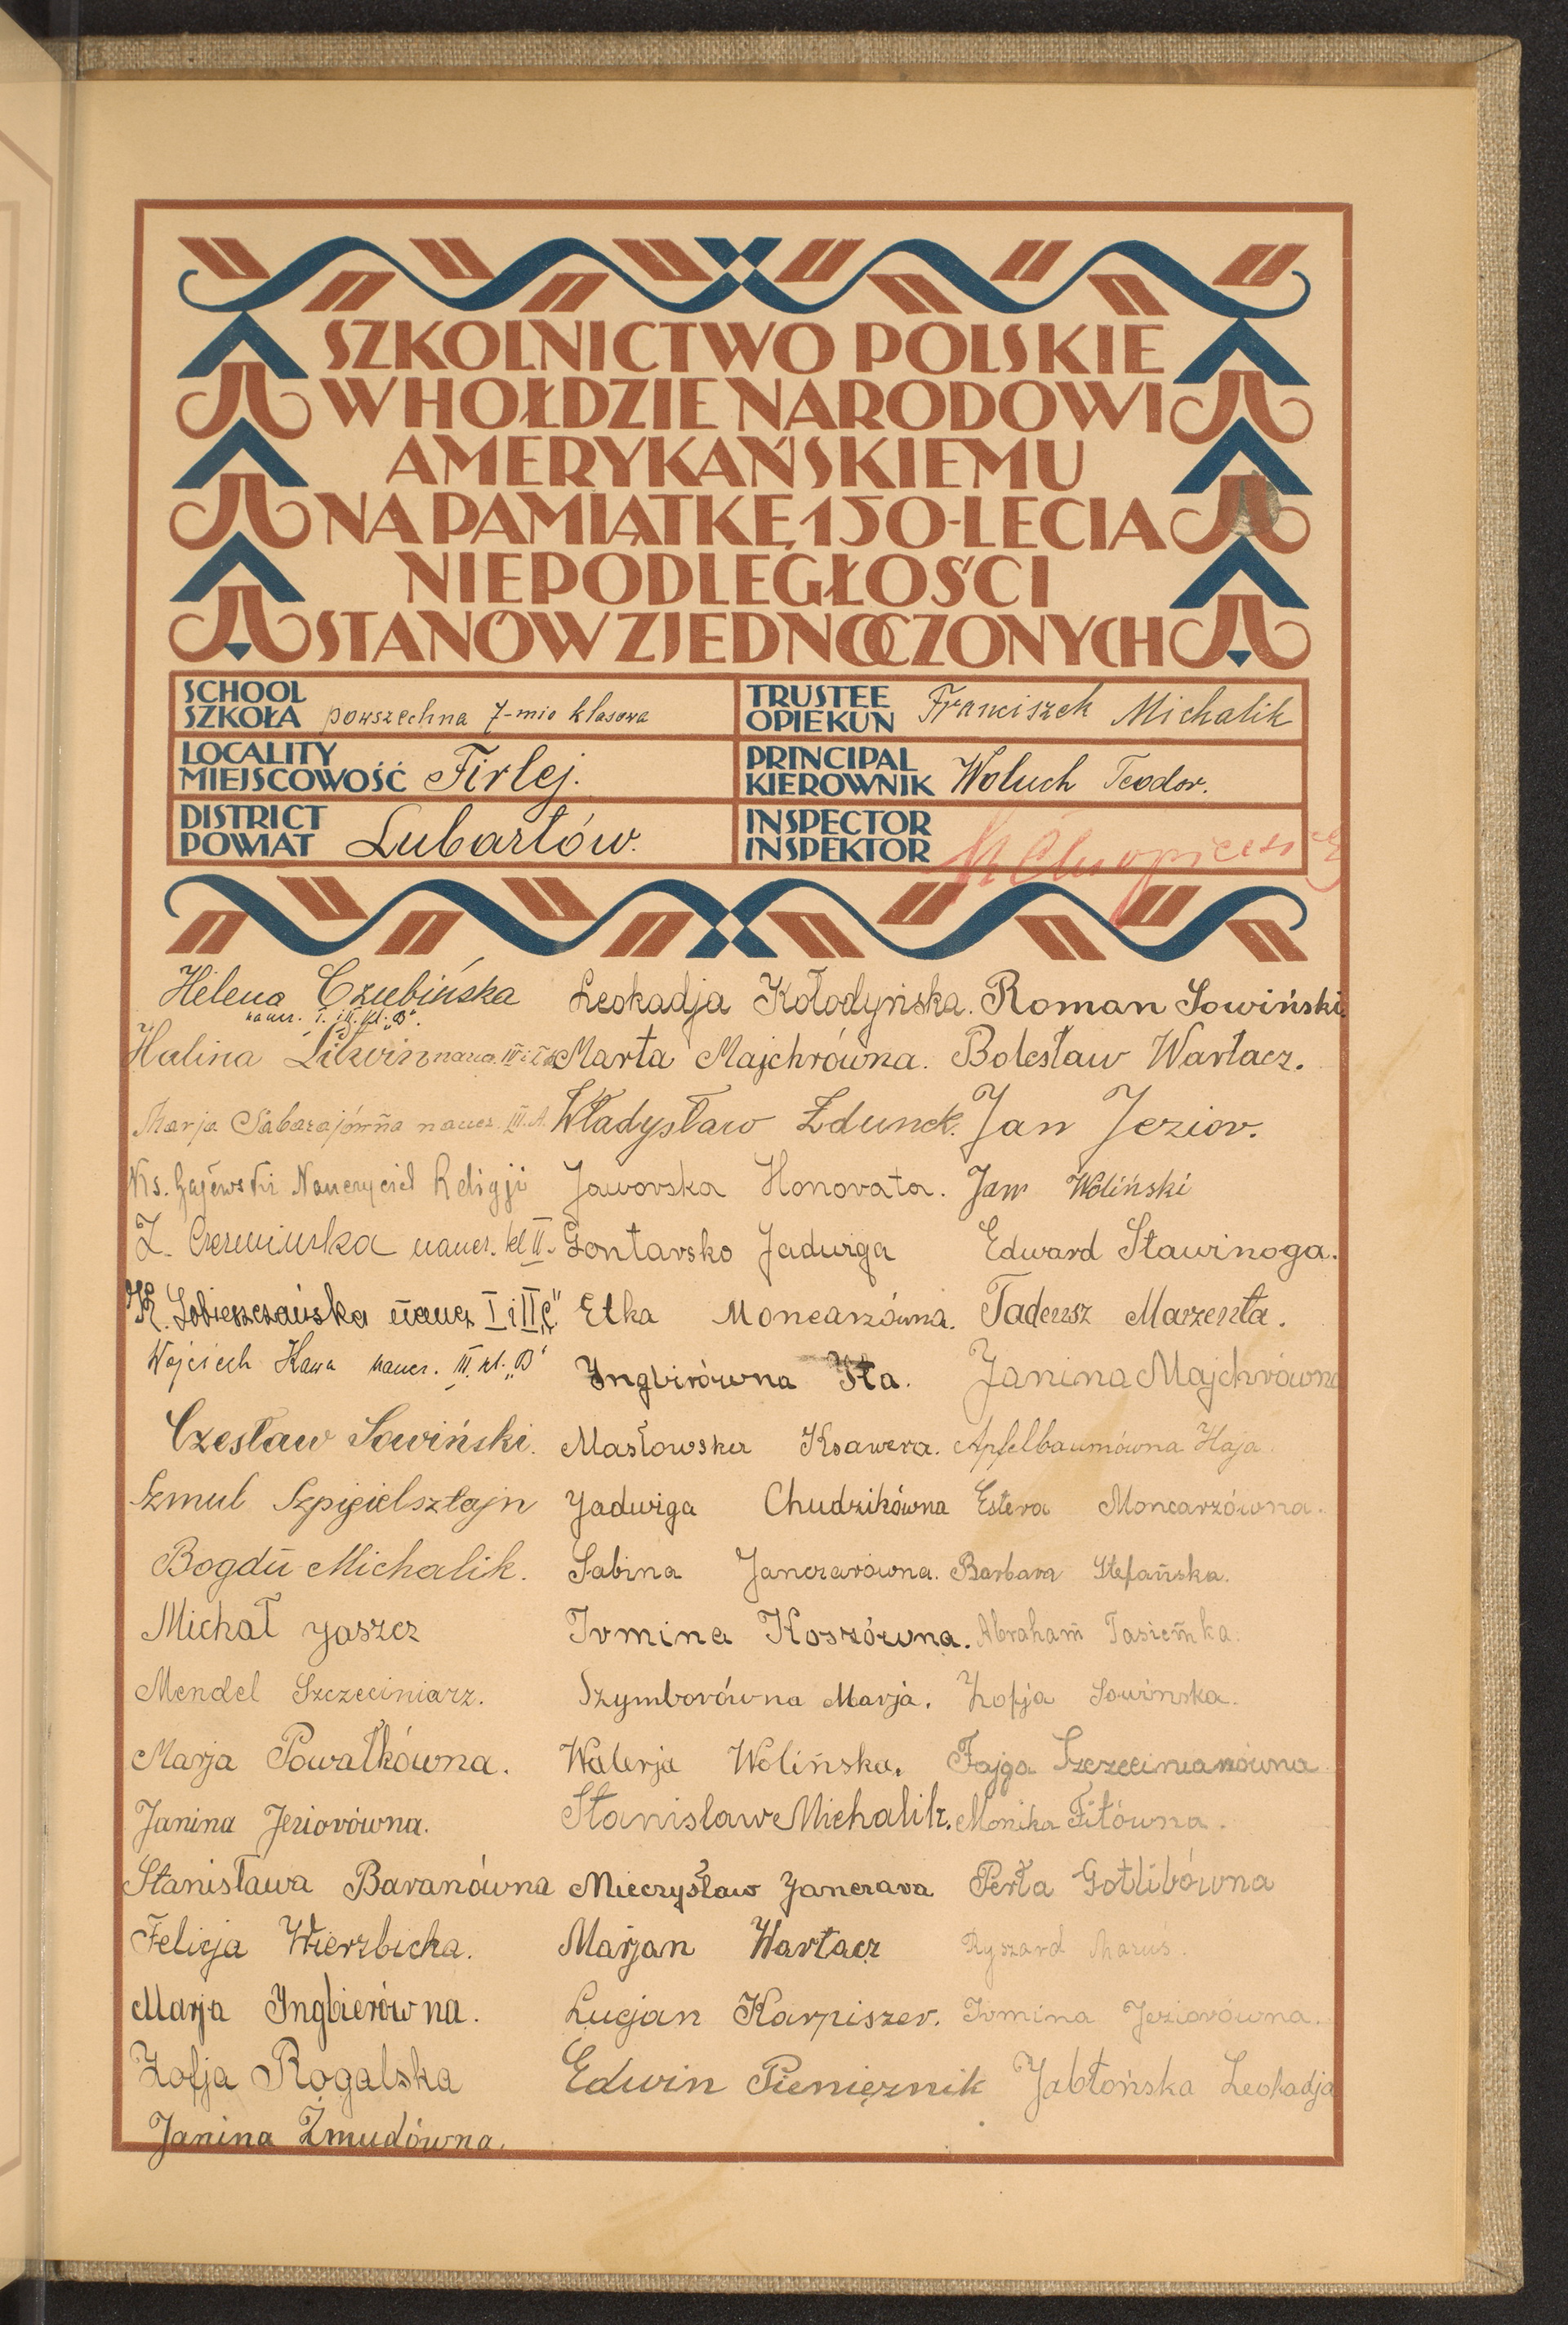 SZKOLNICTWO POLSKIE
W HOŁDZIE NARODOWI
AMERYKAŃSKIEMU
NA PAMIĄTKĘ 150-LECIA
NIEPODLEGŁOŚCI
STANÓW ZJEDNOCZONYCH
SCHOOL
SZKOŁA powszechna 7-mio klasowa
TRUSTEE
OPIEKUN Franciszek Michalik
LOCALITY
MIEJSCOWOŚĆ Firlej.
PRINCIPAL
KIEROWNIK Woluch Teodor.
DISTRICT
POWIAT Lubartów.
INSPECTOR
INSPEKTOR
Helena Czubińska
naucz. I. i II. kl. „B".
Halina Litwin naucz.
Marja naucz. III. A.
Ks. Gajewski Nauczyciel Religji
Z. Czerwińska naucz. kl II.
K. Sobieszczańska naucz I i II „C"
Wojciech Kawa naucz. III. kl. „B"
Czesław Sowiński.
Szmul Szpigielsztajn
Bogdū Michalik.
Michał Jaszcz
Mendel Szczeciniarz.
Marja Powałkówna.
Janina Jeziorówna.
Stanisława Baranówna
Felicja Wierzbicka.
Marja Ingbierówna.
Zofja Rogalska
Janina Żmudówna.
Leokadja Kołodyńska.
Marta Majchrówna.
Władysław Zdunek.
Jaworska Honorata.
Gontarsko Jadwiga
Etka Moncarzówna.
Ingbirówna Ita.
Masłowska Ksawera.
Jadwiga Chudzikówna
Sabina Janczarówna.
Irmina Koszówna.
Szymborówna Marja.
Walerja Wolińska.
Stanisław Michalik.
Mieczysław Janczara
Marjan Wartacz
Lucjan Karpiszer.
Edwin Pienięznik
Roman Sowiński.
Bolesław Wartacz.
Jan Jezior.
Jan Woliński
Edward Stawinoga.
Tadeusz Marzenta.
Janina Majchrówna
Apfelbaumówna Haja.
Estera Moncarzówna.
Barbara Stefańska.
Abraham Tasiemka.
Zofja Sowińska.
Fajga Szczeciniarzówna
Monika Fitówna.
Perła Gotlibówna
Ryszard Maruś.
Irmina Jeziorówna.
Jabłońska Leokadja